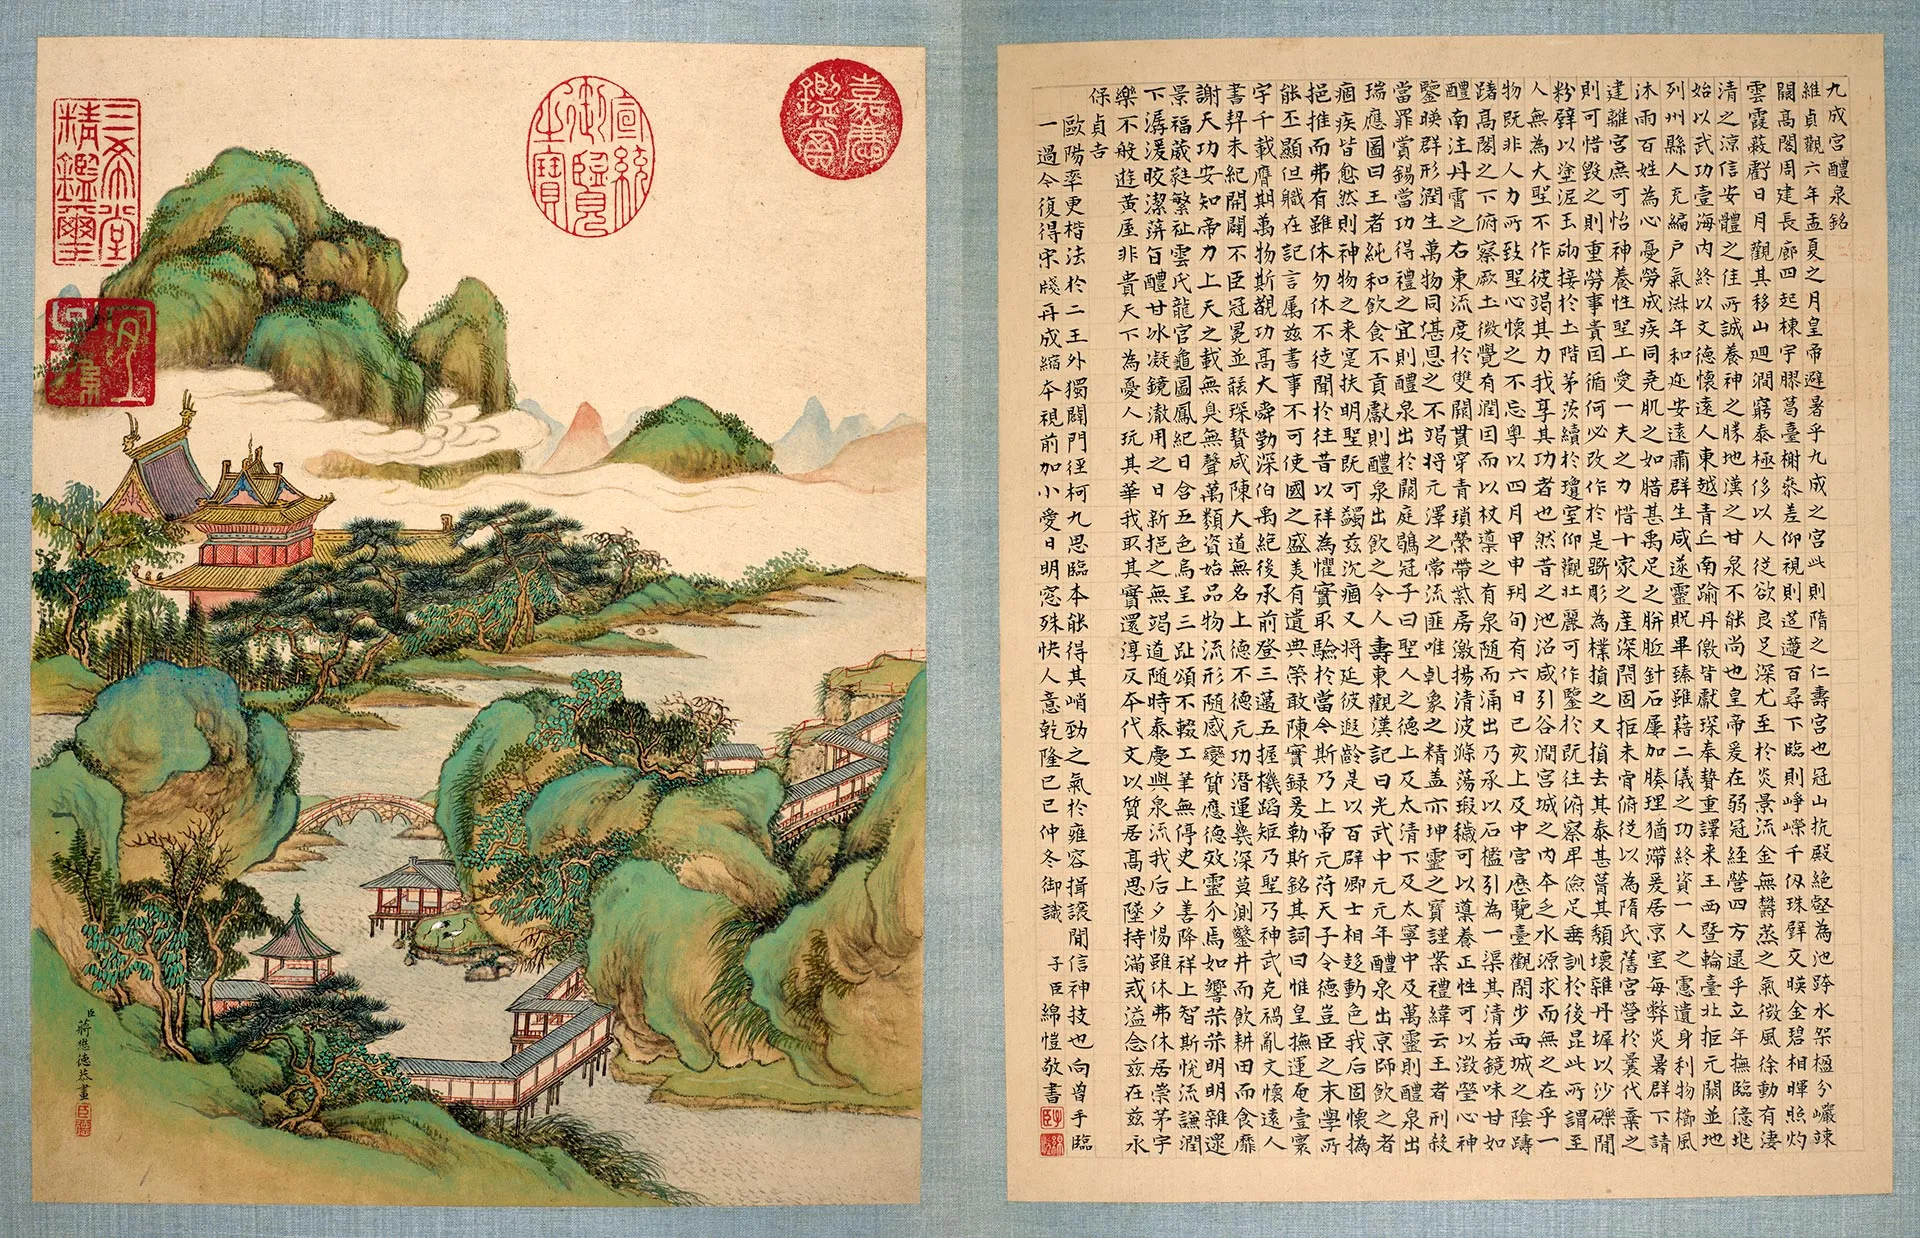 三希堂精鑑璽
宜子孫
宣統御覽之寶
嘉慶鑑賞
臣蔣懋德恭畫
九成宮醴泉銘
維貞觀六年孟夏之月皇帝避暑乎九成之宮此則隋之仁壽宮也冠山抗殿絕壑為池跨水架楹分巖竦
闕高閣周建長廊四起棟宇膠葛臺榭參差仰視則迢遰百尋下臨則崢嶸千仞珠璧交暎金碧相暉照灼
雲霞蔽虧日月觀其移山迴澗窮泰極侈以人從欲良足深尤至於炎景流金無鬱蒸之氣微風徐動有淒
清之涼信安體之佳所誠養神之勝地漢之甘泉不能尚也皇帝爰在弱冠經營四方逮乎立年撫臨億兆
始以武功壹海內終以文德懷遠人東越青丘南踰丹徼皆獻琛奉贄重譯來王西暨輪臺北拒元闕並地
列州縣人充編戶氣淑年和迩安遠肅群生咸遂靈貺畢臻雖藉二儀之功終資一人之慮遺身利物櫛風
沐雨百姓為心憂勞成疾同堯肌之如腊甚禹足之胼胝針石屢加腠理猶滯爰居京室每弊炎暑群下請
建離宮庶可怡神養性聖上愛一夫之力惜十家之產深閉固拒未肯俯從以為隋氏舊宮營於曩代棄之
則可惜毀之則重勞事貴因循何必改作於是斲彫為樸損之又損去其泰甚葺其頹壞雜丹墀以沙礫間
粉壁以塗泥玉砌接於土階茅茨續於瓊室仰觀壯麗可作鑒於既往俯察卑儉足垂訓於後昆此所謂至
人無為大聖不作彼竭其力我享其功者也然昔之池沼咸引谷澗宮城之內本乏水源求而無之在乎一
物既非人力所致聖心懷之不忘粵以四月甲申朔旬有六日己亥上及中宮歷覽臺觀閒步西城之陰躊
躇高閣之下俯察厥土微覺有潤因而以杖導之有泉隨而涌出乃承以石檻引為一渠其清若鏡味甘如
醴南注丹霄之右東流度於雙闕貫穿青瑣縈帶紫房激揚清波滌蕩瑕穢可以導養正性可以澂瑩心神
鑒暎群形潤生萬物同湛恩之不竭將元澤之常流匪唯乾象之精蓋亦坤靈之寶謹案禮緯云王者刑殺
當罪賞錫當功得禮之宜則醴泉出於闕庭鶡冠子曰聖人之德上及太清下及太寧中及萬靈則醴泉出
瑞應圖曰王者純和飲食不貢獻則醴泉出飲之令人壽東觀漢記曰光武中元元年醴泉出京師飲之者
痼疾皆愈然則神物之來寔扶明聖既可蠲茲沉痼又將延彼遐齡是以百辟卿士相趍動色我后固懷撝
挹推而弗有雖休勿休不徒聞於往昔以祥為懼實取驗於當今斯乃上帝元符天子令德豈臣之末學所
能丕顯但職在記言屬茲書事不可使國之盛美有遺典榮敢陳實録爰勒斯銘其詞曰惟皇撫運奄壹寰
宇千載膺期萬物斯覩功高大舜勤深伯禹絕後承前登三邁五握機蹈矩乃聖乃神武克禍亂文懷遠人
書契未紀開闢不臣冠冕並襲琛贄咸陳大道無名上德不德元功潛運幾深莫測鑿井而飲耕田而食靡
謝天功安知帝力上天之載無臭無聲萬類資始品物流形隨感變質應德效靈介焉如響赫赫明明雜遝
景福葳蕤繁祉雲氏龍宮龜圖鳳紀日含五色烏呈三趾頌不輟工筆無停史上善降祥上智斯悅流謙潤
下潺湲晈潔蓱旨醴甘冰凝鏡澈用之日新挹之無竭道隨時泰慶與泉流我后夕惕雖休弗休居崇茅宇
樂不般遊黃屋非貴天下為憂人玩其華我取其實還淳反本代文以質居高思墜持滿戒溢念茲在茲永
保貞吉
歐陽率更楷法於二王外獨闢門徑柯九思臨本能得其峭勁之氣於雍容揖讓間信神技也向曾手臨
一過今復得宋牋再成縮本視前加小愛日明窗殊快人意乾隆己巳仲冬御識 子臣綿愷敬書